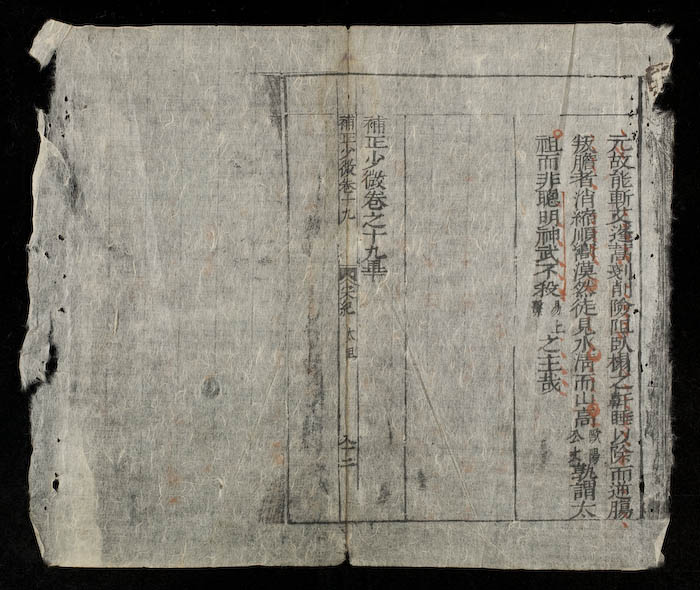 元故能斬艾蓬蒿剗削險阻臥榻之鼾睡以除而逆腸
叛膽者消縮順嚮漠然徒見水淸而山高歐陽公文孰謂太
祖而非聰明神武不殺易上繫之主哉
補正少微卷之十九 畢
補正少微卷十九 宋紀 太祖